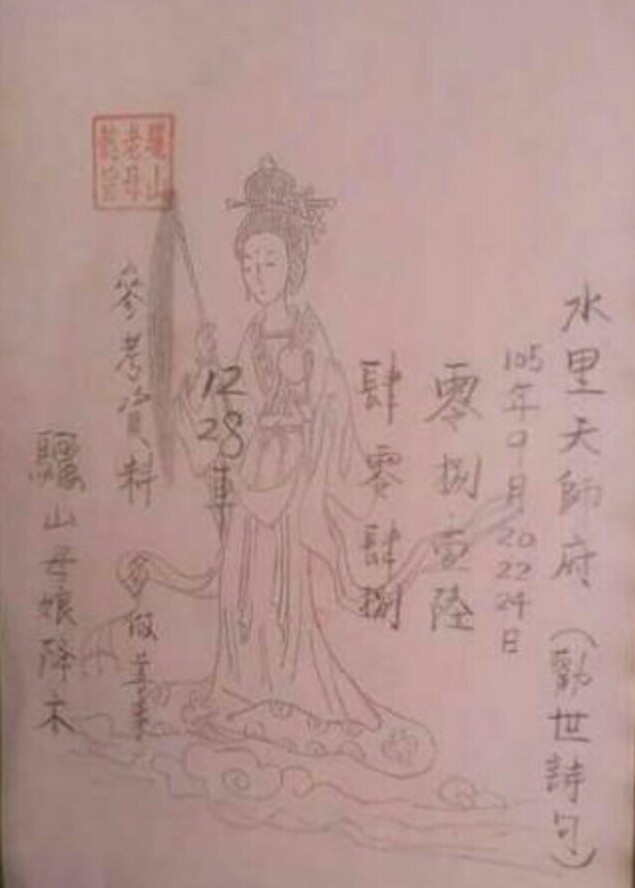 水里天師府(勸世詩句)
105年9月20 22 24日
零捌壹陸
肆零肆捌
12
28車
參考資料 多做善事
驪山母娘降示
驪山
老母